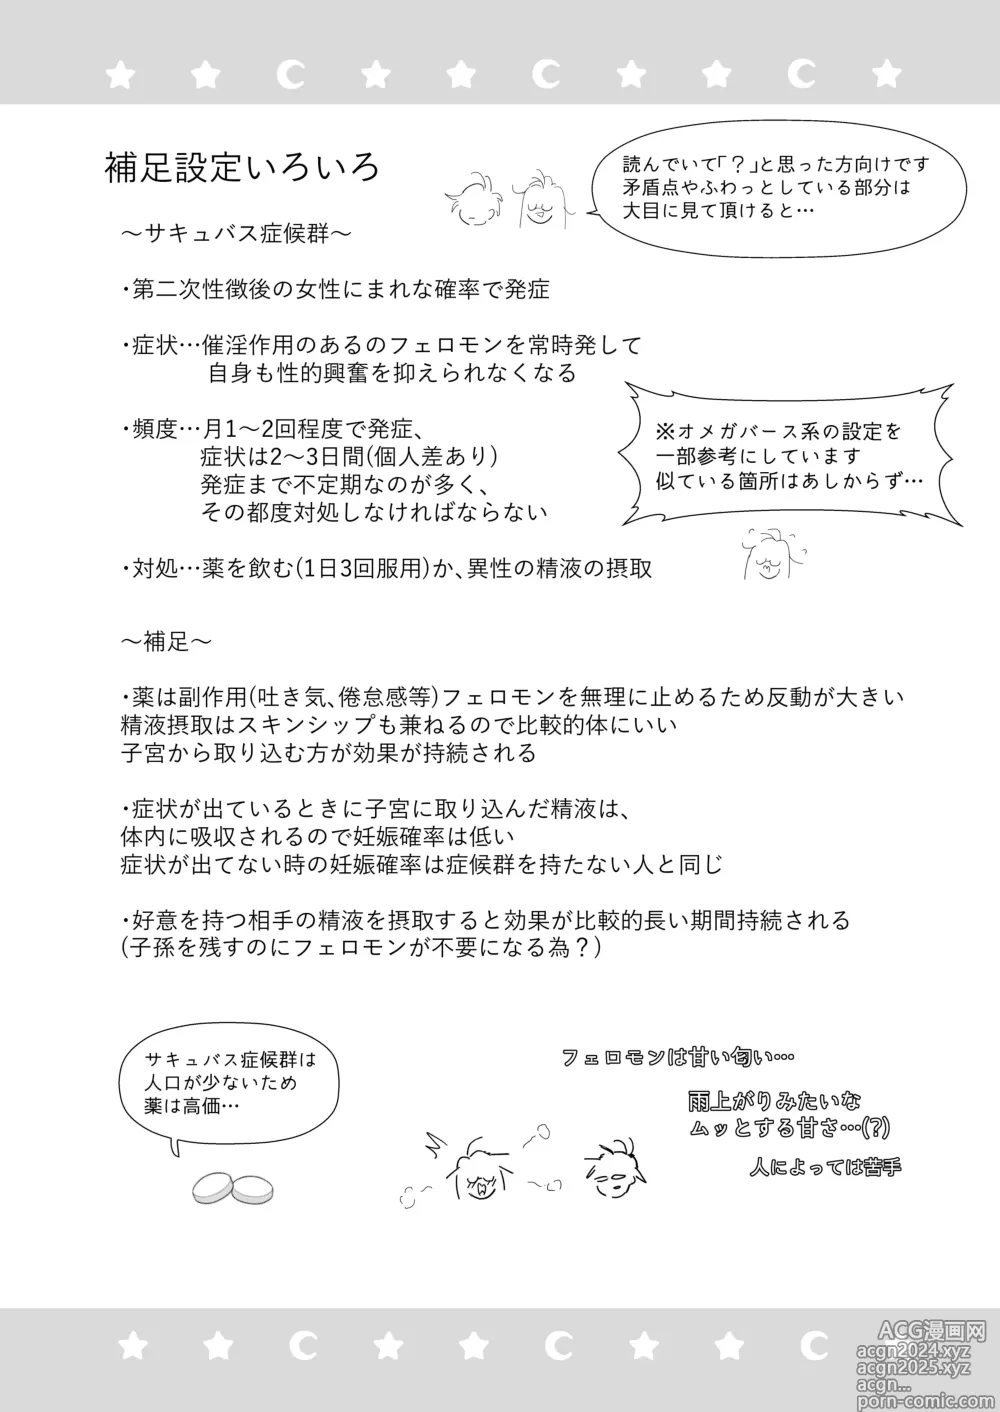 補足設定いろいろ
読んでいて「？」と思った方向けです
矛盾点やふわっとしている部分は
大目に見て頂けると…
～サキュバス症候群～
・第二次性徴後の女性にまれな確率で発症
・症状…催淫作用のあるのフェロモンを常時発して
自身も性的興奮を抑えられなくなる
・頻度…月1～2回程度で発症、
症状は2～3日間(個人差あり)
発症まで不定期なのが多く、
その都度対処しなければならない
※オメガバース系の設定を
一部参考にしています
似ている箇所はあしからず…
・対処…薬を飲む(1日3回服用)か、異性の精液の摂取
～補足～
・薬は副作用(吐き気、倦怠感等)フェロモンを無理に止めるため反動が大きい
精液摂取はスキンシップも兼ねるので比較的体にいい
子宮から取り込む方が効果が持続される
・症状が出ているときに子宮に取り込んだ精液は、
体内に吸収されるので妊娠確率は低い
症状が出てない時の妊娠確率は症候群を持たない人と同じ
・好意を持つ相手の精液を摂取すると効果が比較的長い期間持続される
(子孫を残すのにフェロモンが不要になる為？)
サキュバス症候群は
人口が少ないため
薬は高価…
フェロモンは甘い匂い…
雨上がりみたいな
ムッとする甘さ…(?)
人によっては苦手
ACG漫画网
acgn2024.xyz
acgn2025.xyz
acgn...
porn-comic.com